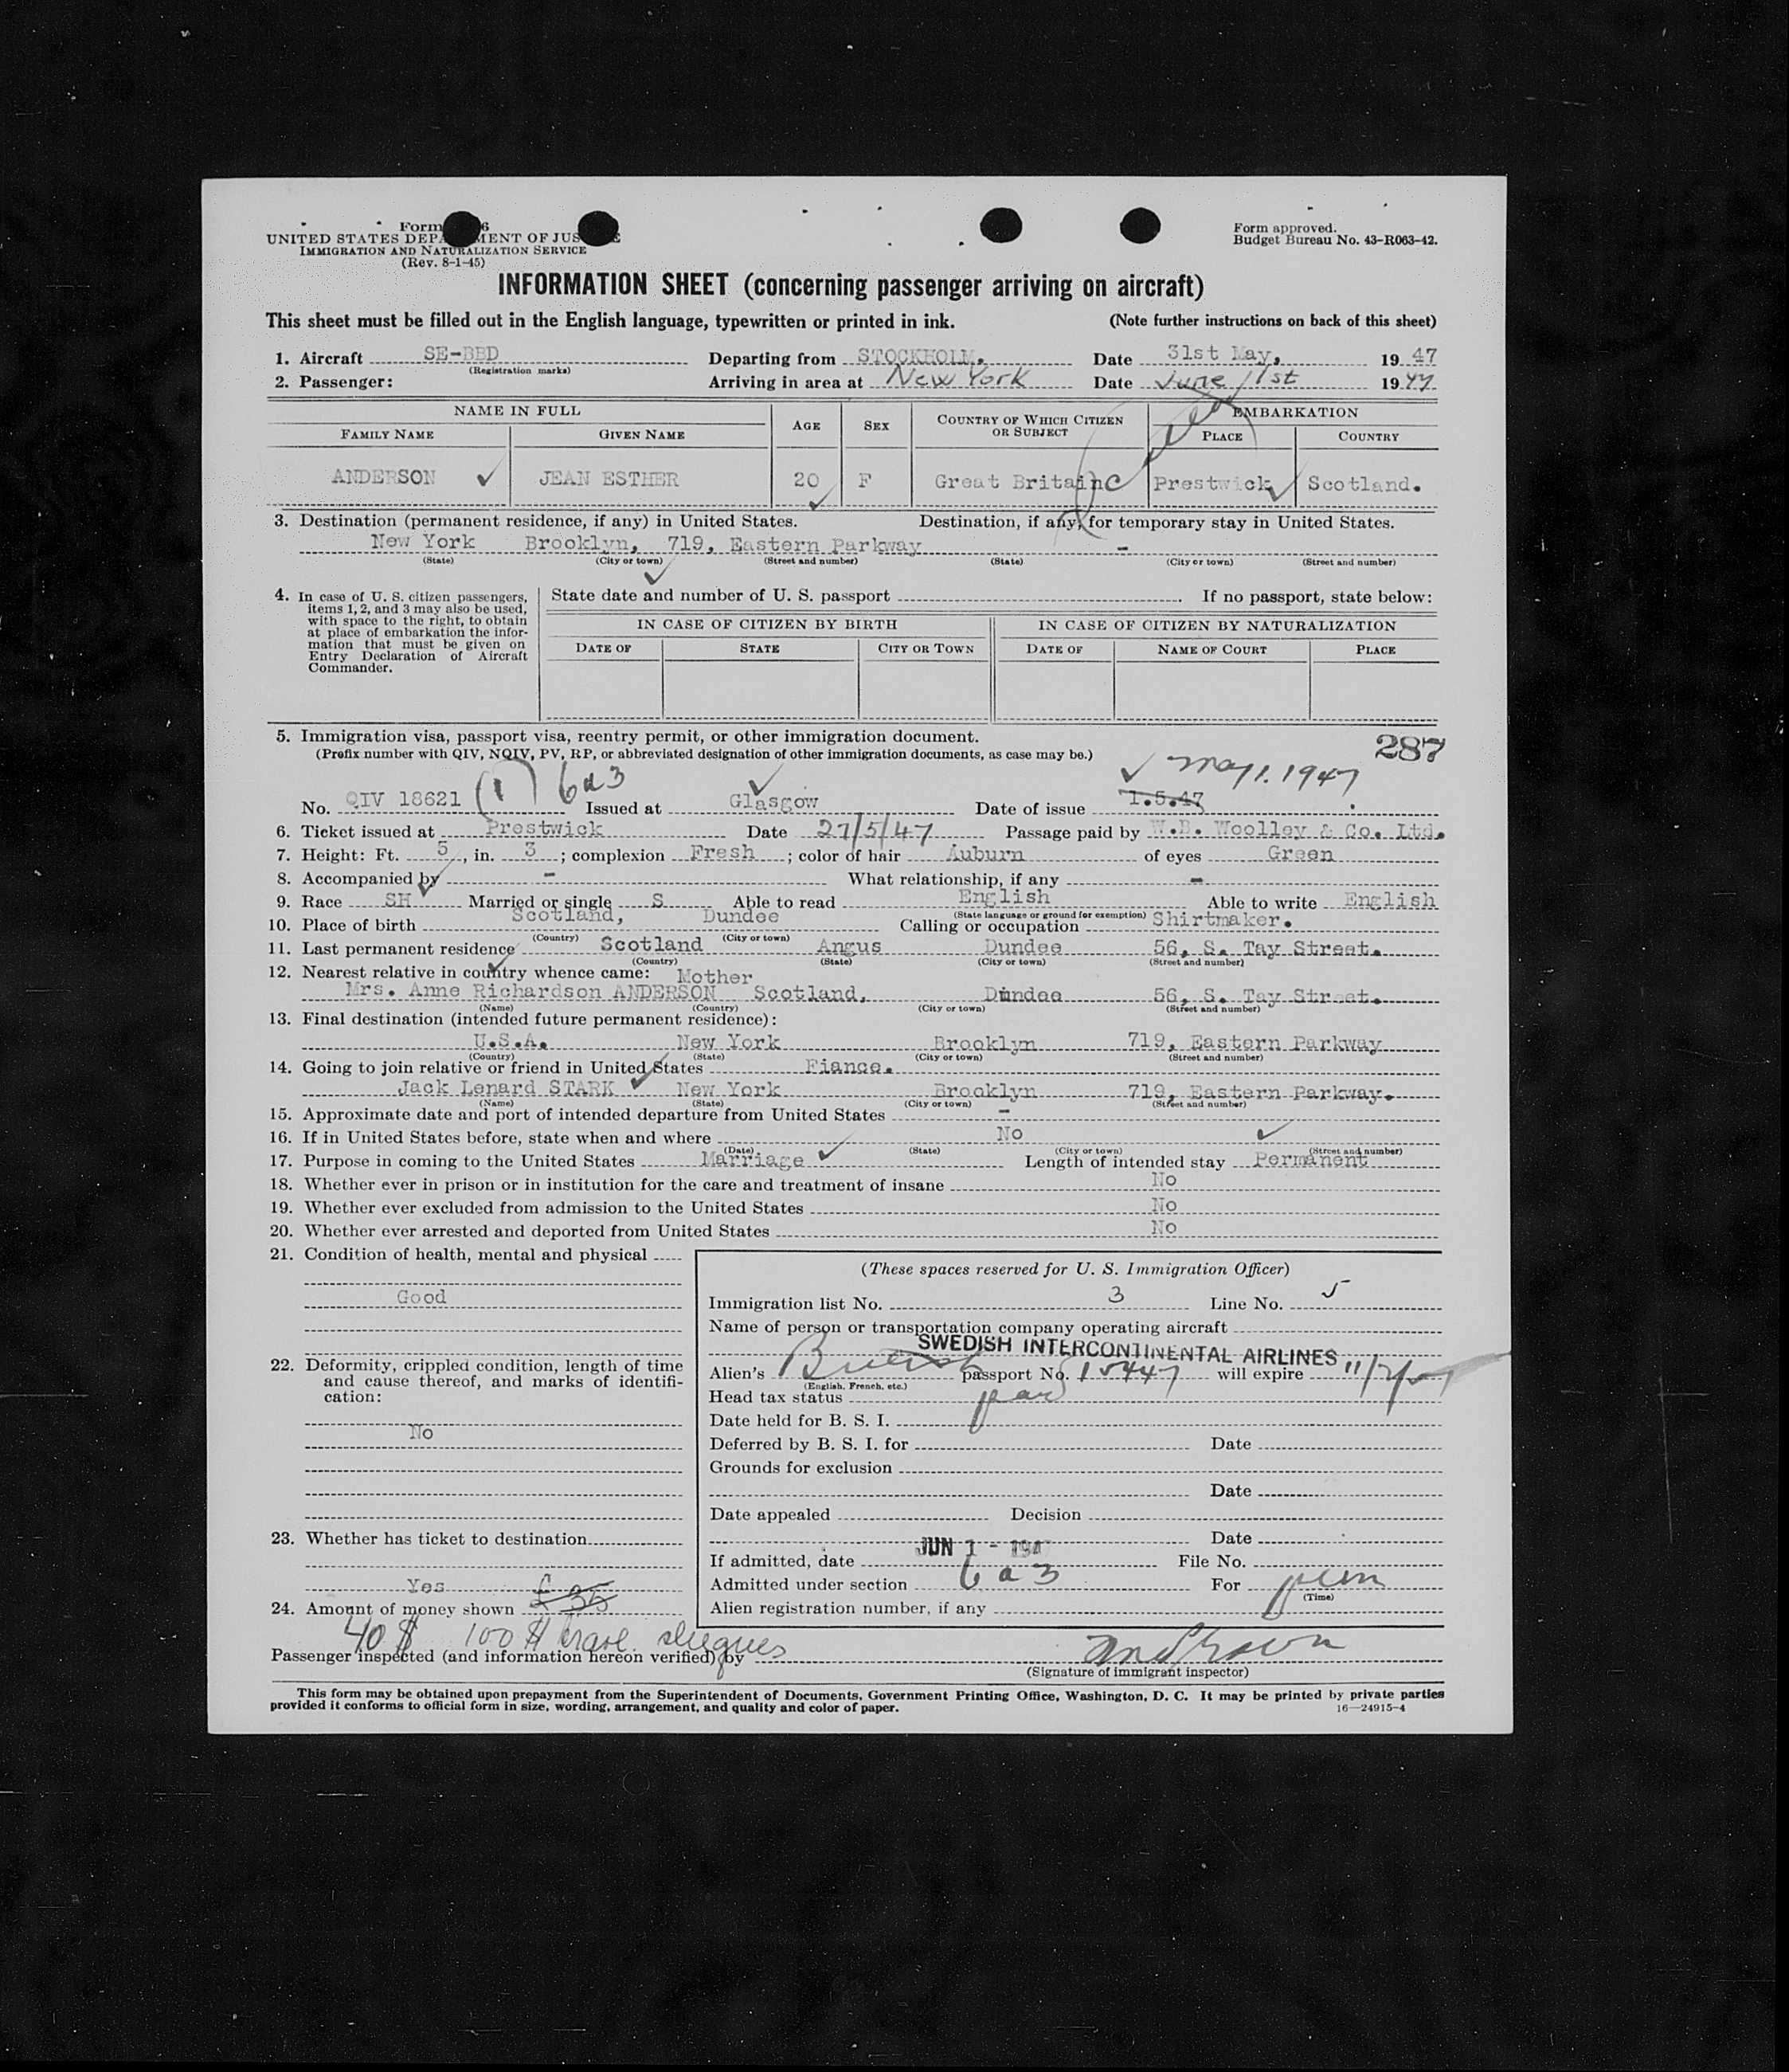 Form 6
UNITED STATES DEPARTMENT OF JUSTICE
IMMIGRATION AND NATURALIZATION SERVICE
(Rev. 8-1-45)
Form approved.
Budget Bureau No. 43-R063-42.
INFORMATION SHEET (concerning passenger arriving on aircraft)
This sheet must be filled out in the English language, typewritten or printed in ink. (Note further instructions on back of this sheet)
1. Aircraft SE-BBD Departing from STOCKHOLM. Date 31st May, 19 47
(Registration marks)
2. Passenger: Arriving in area at New York Date June 1st 1947
NAME IN FULL AGE SEX COUNTRY OF WHICH CITIZEN OR SUBJECT EMBARKATION
FAMILY NAME GIVEN NAME PLACE COUNTRY
ANDERSON JEAN ESTHER 20 F Great Britain Prestwick Scotland.
3. Destination (permanent residence, if any) in United States. Destination, if any, for temporary stay in United States.
New York Brooklyn, 719, Eastern Parkway -
(State) (City or town) (Street and number) (State) (City or town) (Street and number)
4. In case of U. S. citizen passengers, items 1, 2, and 3 may also be used, with space to the right, to obtain at place of embarkation the information that must be given on Entry Declaration of Aircraft Commander.
State date and number of U. S. passport . If no passport, state below:
IN CASE OF CITIZEN BY BIRTH IN CASE OF CITIZEN BY NATURALIZATION
DATE OF STATE CITY OR TOWN DATE OF NAME OF COURT PLACE
5. Immigration visa, passport visa, reentry permit, or other immigration document.
(Prefix number with QIV, NQIV, PV, RP, or abbreviated designation of other immigration documents, as case may be.)
287
May 1. 1947
No. QIV 18621 (1) 6a3 Issued at Glasgow Date of issue 1.5.47
6. Ticket issued at Prestwick Date 27/5/47 Passage paid by W.B. Woolley & Co. Ltd.
7. Height: Ft. 5, in. 3; complexion Fresh; color of hair Auburn of eyes Green
8. Accompanied by - What relationship, if any -
9. Race SH Married or single S Able to read English Able to write English
(State language or ground for exemption)
10. Place of birth Scotland, Dundee Calling or occupation Shirtmaker.
(Country) (City or town)
11. Last permanent residence Scotland Angus Dundee 56, S. Tay Street.
(Country) (State) (City or town) (Street and number)
12. Nearest relative in country whence came: Mother
Mrs. Anne Richardson ANDERSON Scotland, Dundee 56, S. Tay Street.
(Name) (Country) (City or town) (Street and number)
13. Final destination (intended future permanent residence):
U.S.A. New York Brooklyn 719, Eastern Parkway
(Country) (State) (City or town) (Street and number)
14. Going to join relative or friend in United States Fiance.
Jack Lenard STARK New York Brooklyn 719, Eastern Parkway.
(Name) (State) (City or town) (Street and number)
15. Approximate date and port of intended departure from United States -
16. If in United States before, state when and where No
(Date) (State) (City or town) (Street and number)
17. Purpose in coming to the United States Marriage Length of intended stay Permanent
18. Whether ever in prison or in institution for the care and treatment of insane No
19. Whether ever excluded from admission to the United States No
20. Whether ever arrested and deported from United States No
21. Condition of health, mental and physical
Good
22. Deformity, crippled condition, length of time and cause thereof, and marks of identification:
No
23. Whether has ticket to destination
Yes
24. Amount of money shown £ 35
40 $ 100 $ trave. cheques
(These spaces reserved for U. S. Immigration Officer)
Immigration list No. 3 Line No. 5
Name of person or transportation company operating aircraft
SWEDISH INTERCONTINENTAL AIRLINES
Alien's British passport No. 15447 will expire
(English, French, etc.)
Head tax status
Date held for B. S. I.
Deferred by B. S. I. for Date
Grounds for exclusion
Date
Date appealed Decision
Date
If admitted, date JUN 1 - 194 File No.
Admitted under section 6a3 For perm
(Time)
Alien registration number, if any
Passenger inspected (and information hereon verified) by
(Signature of immigrant inspector)
This form may be obtained upon prepayment from the Superintendent of Documents, Government Printing Office, Washington, D. C. It may be printed by private parties
provided it conforms to official form in size, wording, arrangement, and quality and color of paper. 16—24915-4